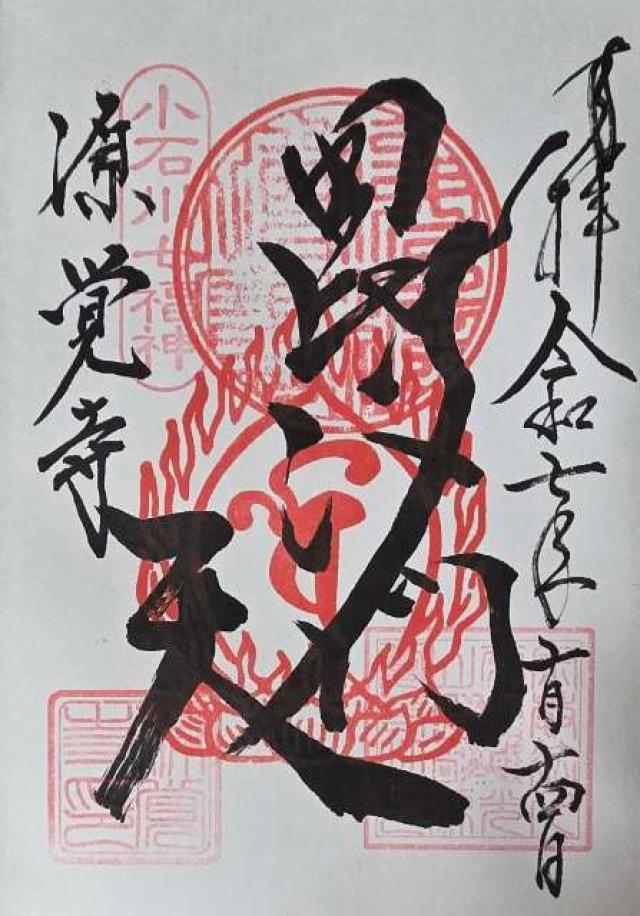 奉拝
令和七年十月十四日
毘沙門天
小石川七福神
源覚寺